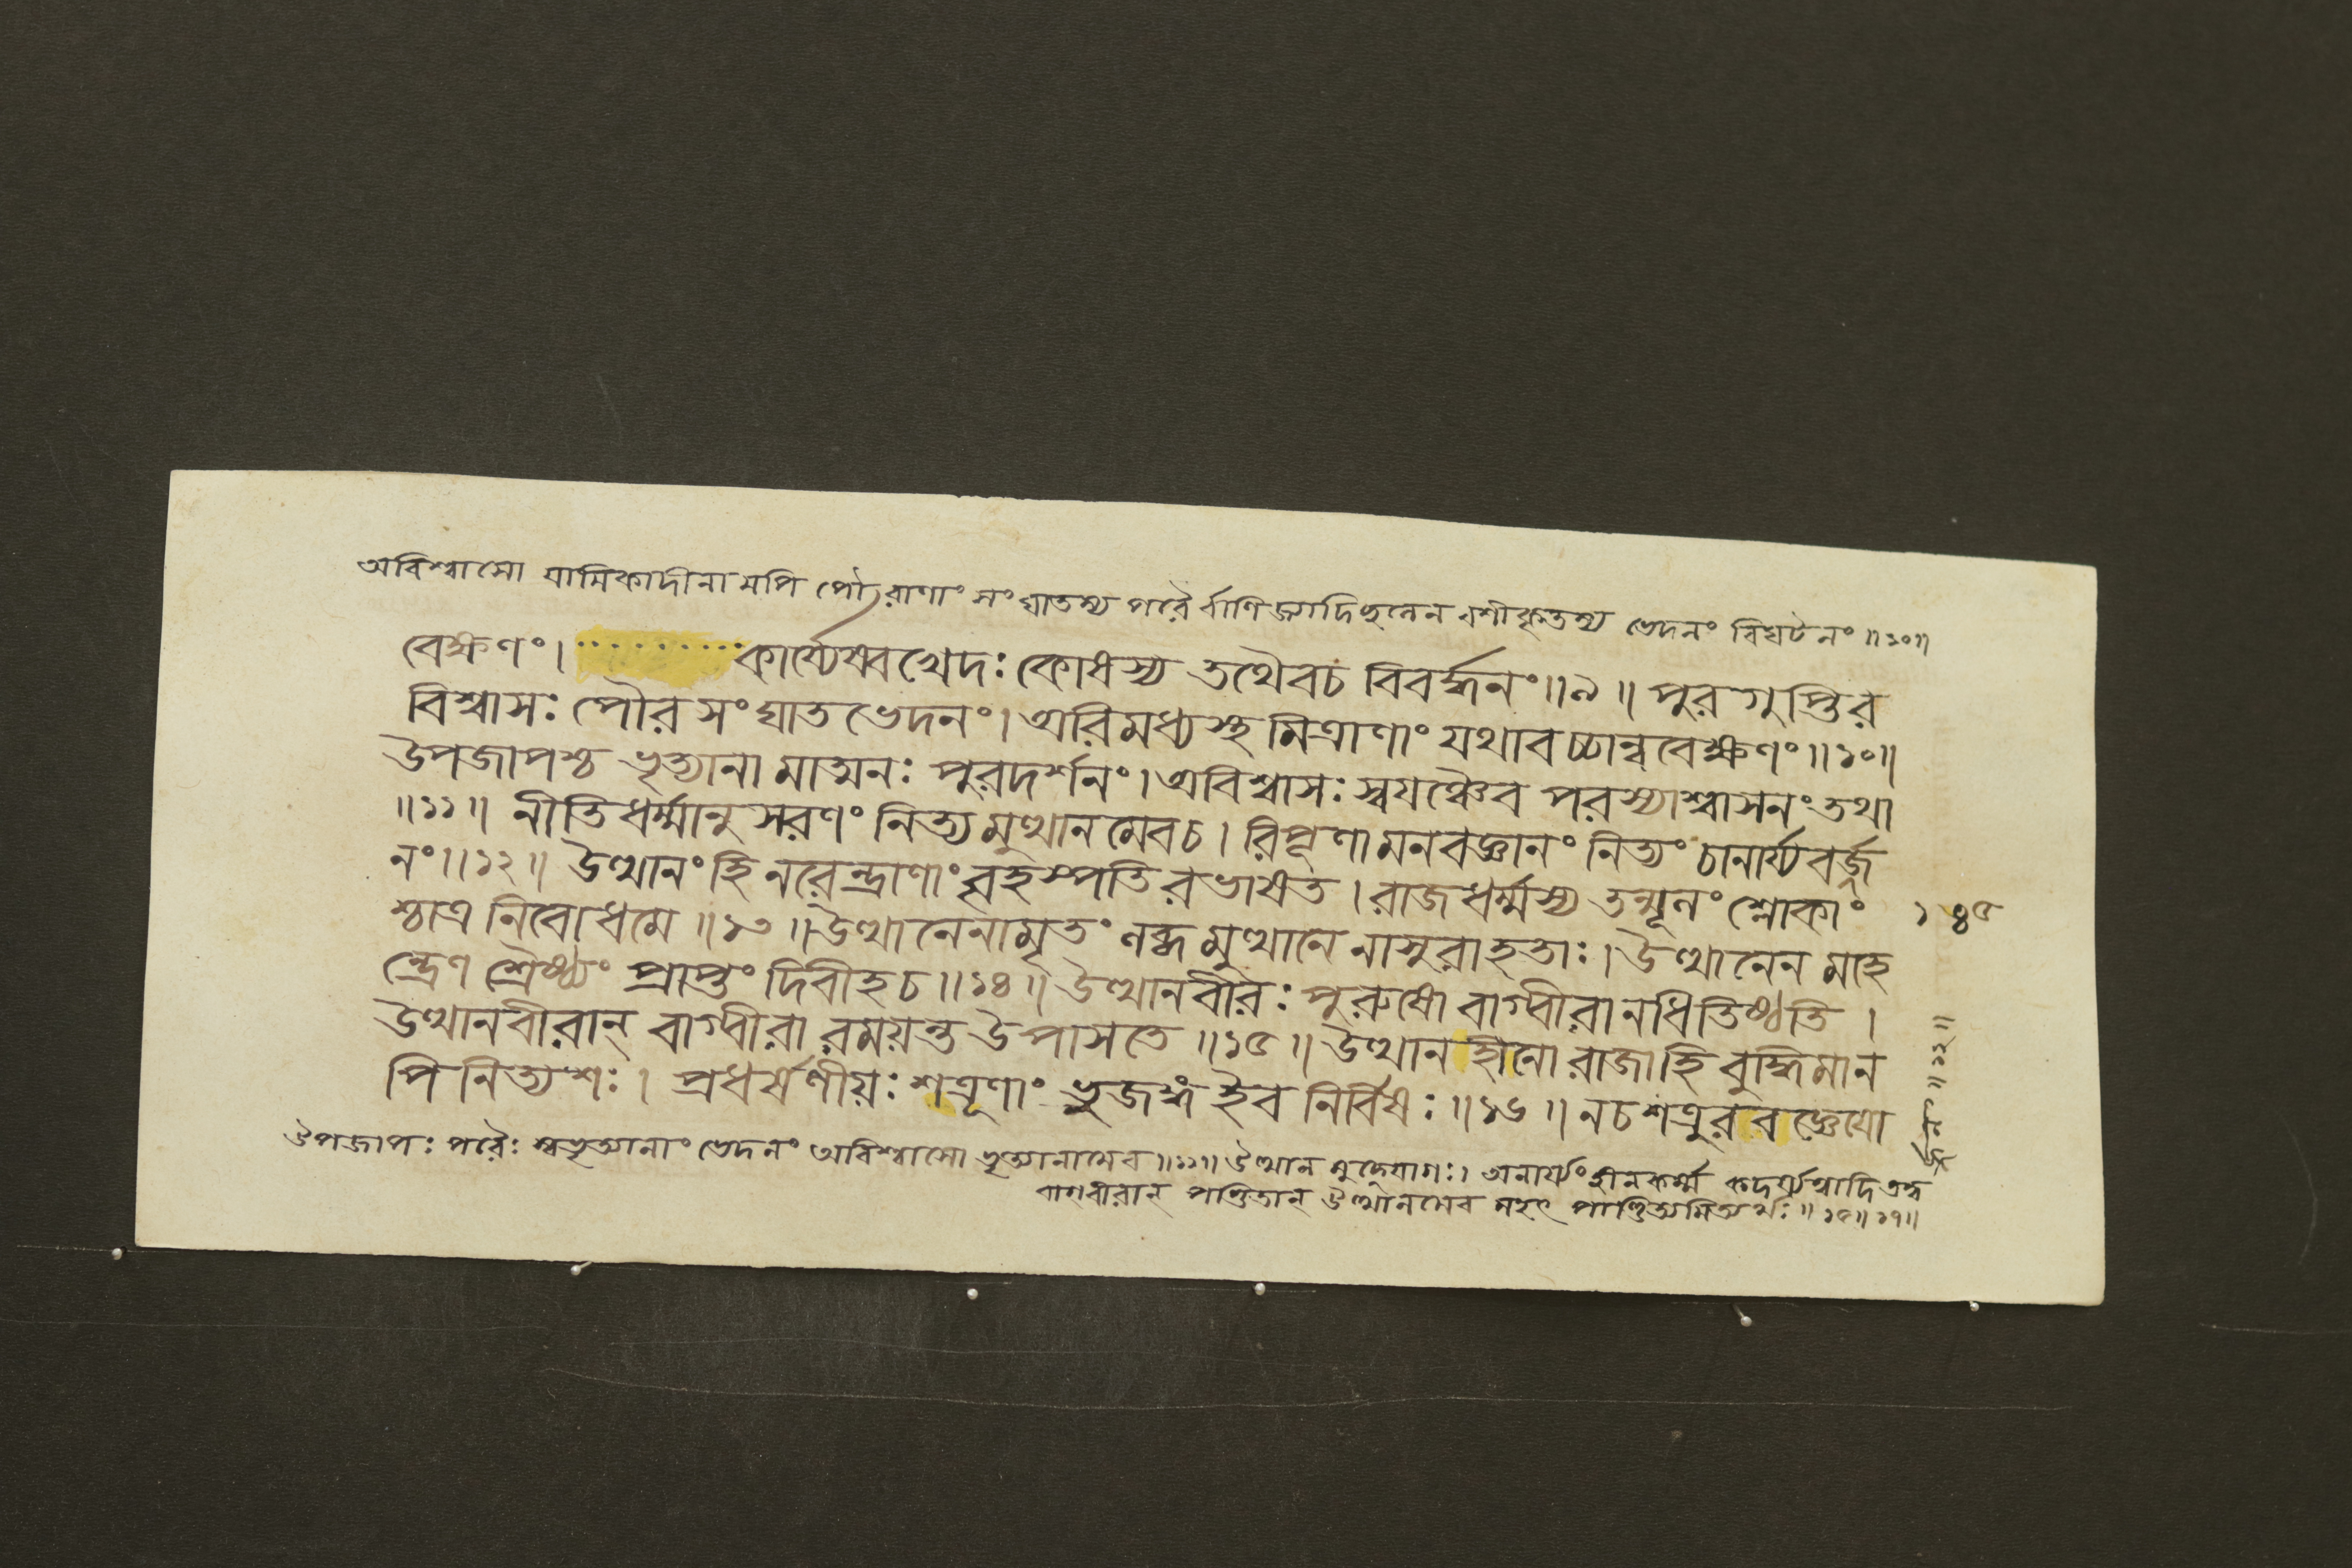 অবিশ্বাসো যামিকাদীনামপি পৌরাণাং সংঘাতস্য পরৈর্বাণিজ্যাদিছলেন বশীকৃতস্য ভেদনং বিঘটনং ॥১০॥
বেক্ষণং। ········· কার্য্যেষ্বখেদঃ কোধস্য তথৈবচ বিবর্দ্ধনং॥৯॥ পুরগুপ্তির
বিশ্বাসঃ পৌরসংঘাতভেদনং। অরিমধ্যস্থমিত্রাণাং যথাবচ্চান্ববেক্ষণং॥১০॥
উপজাপশ্চ ভৃত্যানামাত্মনঃ পুরদর্শনং। অবিশ্বাসঃ স্বযঞ্চৈব পরস্যাশ্বাসনং তথা
॥১১॥ নীতিধর্ম্মানুসরণং নিত্যমুত্থানমেবচ। রিপূণামনবজ্ঞানং নিত্যং চানার্য্যবর্জ্জ
নং॥১২॥ উত্থানং হি নরেন্দ্রাণাং বৃহস্পতিরভাষত। রাজধর্ম্মস্য তন্মূলং শ্লোকাং
শ্চাত্র নিবোধমে॥১৩॥ উত্থানেনামৃতং লব্ধমুত্থানেনাসুরাহতাঃ। উত্থানেন মহে
ন্দ্রেণ শ্রৈষ্ঠ্যং প্রাপ্তং দিবীহচ॥১৪॥ উত্থানবীরঃ পুরুষো বাগ্বীরানধিতিষ্ঠতি।
উত্থানবীরান্ বাগ্বীরা রময়ন্ত উপাসতে॥১৫॥ উত্থানহীনো রাজাহি বুদ্ধিমান
পি নিত্যশঃ। প্রধর্ষণীয়ঃ শত্রূণাং ভুজঙ্গ ইব নির্বিষঃ॥১৬॥ নচ শত্রুরবজ্ঞেযো
১৪৫
উপজাপঃ পরৈঃ স্বভৃত্যানাং ভেদনং অবিশ্বাসো ভৃত্যানামেব॥১১॥ উত্থানমুদ্যোগঃ। অনার্য্যং হীনকর্ম্ম কদর্য্যত্বাদি তদ্ব
র্জনং॥১২॥
বাগ্বীরান্ পণ্ডিতান্ উত্থানমেব মহৎ পাণ্ডিত্যমিত্যর্থঃ॥১৫॥১৭॥